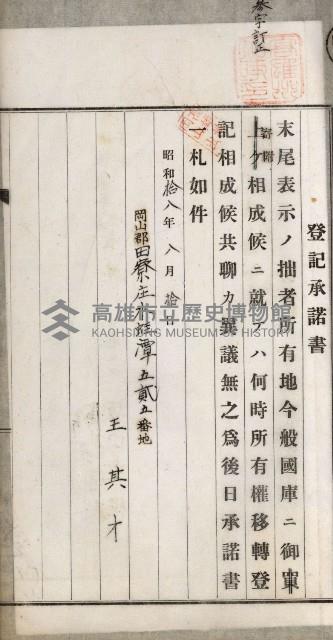 参字訂正
登記承諾書
末尾表示ノ拙者所有地今般國庫ニ御買
寄附
上ケ相成候ニ就テハ何時所有權移轉登
記相成候共聊カ異議無之爲後日承諾書
一札如件
昭和拾八年八月 日
岡山郡田寮庄 潭五貳五番地
王其才
高雄市立歷史博物館
KAOHSIUNG MUSEUM OF HISTORY